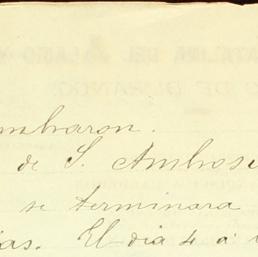 mbraron.
de S. Ambrosi
se terminara
as. El dia 4 a